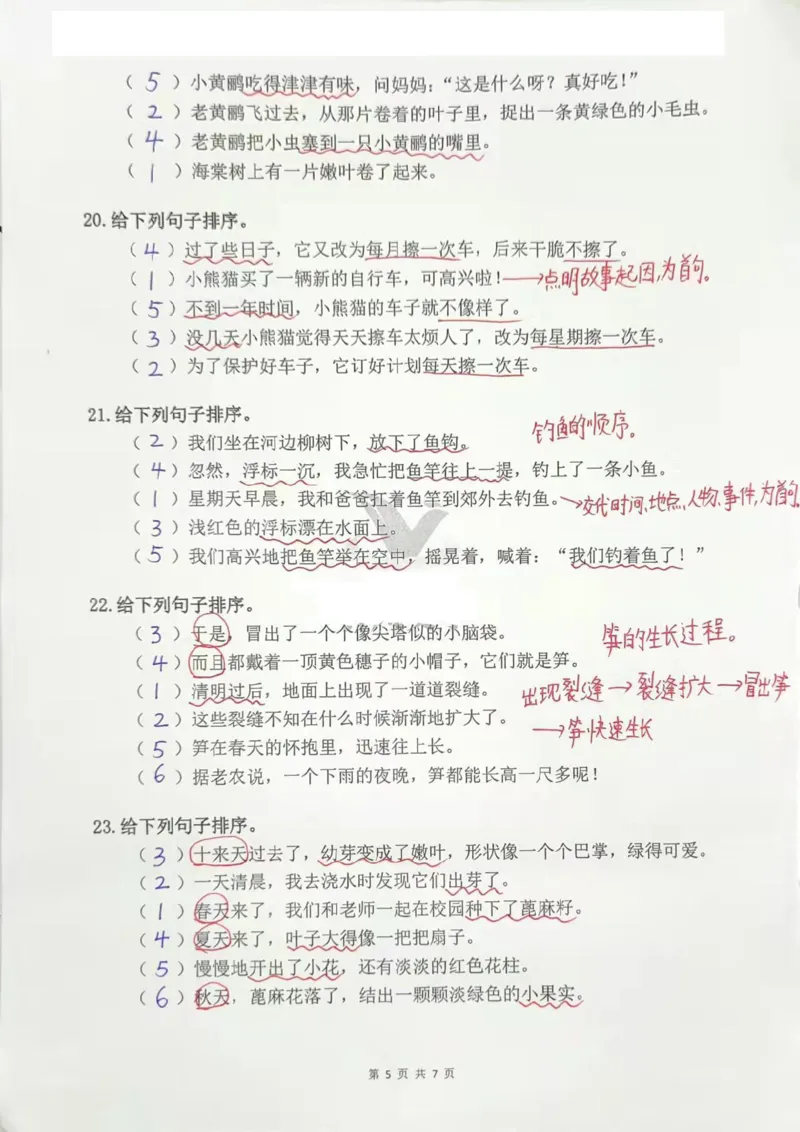 （5）小黄鹂吃得津津有味，问妈妈：“这是什么呀？真好吃！”
（2）老黄鹂飞过去，从那片卷着的叶子里，捉出一条黄绿色的小毛虫。
（4）老黄鹂把小虫塞到一只小黄鹂的嘴里。
（1）海棠树上有一片嫩叶卷了起来。
20.给下列句子排序。
（4）过了些日子，它又改为每月擦一次车，后来干脆不擦了。
（1）小熊猫买了一辆新的自行车，可高兴啦！→点明故事起因，为首句。
（5）不到一年时间，小熊猫的车子就不像样了。
（3）没几天小熊猫觉得天天擦车太烦人了，改为每星期擦一次车。
（2）为了保护好车子，它订好计划每天擦一次车。
21.给下列句子排序。
（2）我们坐在河边柳树下，放下了鱼钩。 钓鱼的顺序。
（4）忽然，浮标一沉，我急忙把鱼竿往上一提，钓上了一条小鱼。
（1）星期天早晨，我和爸爸扛着鱼竿到郊外去钓鱼。→交代时间、地点、人物、事件，为首句。
（3）浅红色的浮标漂在水面上。
（5）我们高兴地把鱼竿举在空中，摇晃着，喊着：“我们钓着鱼了！”
22.给下列句子排序。
（3）于是，冒出了一个个像尖塔似的小脑袋。 笋的生长过程。
（4）而且都戴着一顶黄色穗子的小帽子，它们就是笋。
（1）清明过后，地面上出现了一道道裂缝。 出现裂缝→裂缝扩大→冒出笋
（2）这些裂缝不知在什么时候渐渐地扩大了。 →笋快速生长
（5）笋在春天的怀抱里，迅速往上长。
（6）据老农说，一个下雨的夜晚，笋都能长高一尺多呢！
23.给下列句子排序。
（3）十来天过去了，幼芽变成了嫩叶，形状像一个个巴掌，绿得可爱。
（2）一天清晨，我去浇水时发现它们出芽了。
（1）春天来了，我们和老师一起在校园种下了蓖麻籽。
（4）夏天来了，叶子大得像一把把扇子。
（5）慢慢地开出了小花，还有淡淡的红色花柱。
（6）秋天，蓖麻花落了，结出一颗颗淡绿色的小果实。
第 5 页 共 7 页